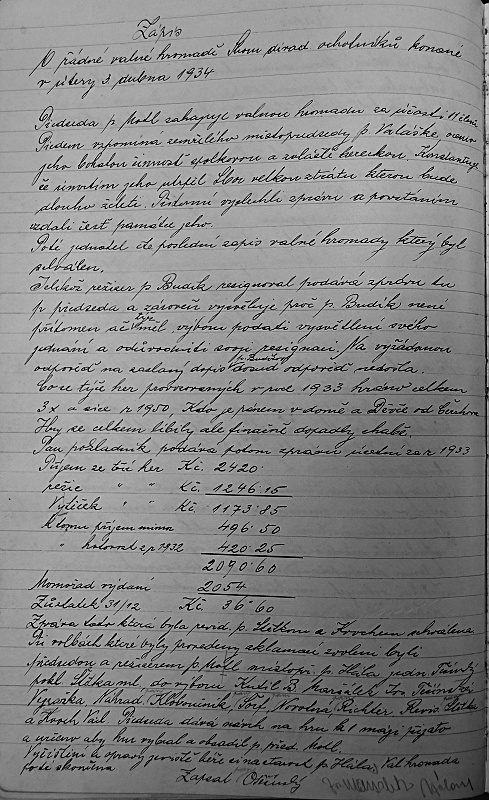 Zápis
O řádné valné hromadě Sboru divad ochotníků konané
v úterý 3 dubna 1934
Předseda p. Motl zahajuje valnou hromadu za účasti 11 členů
Předem vzpomíná zemřelého místopředsedy p. Valáška, ocenil
jeho bohatou činnost spolkovou a zvláště hereckou. Konstatuje
že úmrtím jeho utrpěl Sbor velkou ztrátu kterou bude
dlouho želeti. Přítomní vyslechli zprávu a povstáním
vzdali čest památce jeho.
Poté jednatel čte poslední zápis valné hromady který byl
schválen.
Jelikož režiser p. Budík resignoval podává zprávu tu
p předseda a zároveň vysvětluje proč p. Budík není
přítomen ač měl výboru podati vysvětlení svého
jednání a odůvodniti svoji resignaci. Na vyžádanou
odpověď na zaslaný dopis p. Budíkovi dosud odpověď nedošla.
Co se týče her provozovaných v roce 1933 hráno celkem
3x a sice r 1950, Kdo je pánem v domě a Děvče od Čerchova
Hry se celkem líbily ale finačně dopadly chabě.
Pan pokladník podává potom zprávu účetní za r 1933
Příjem ze tří her Kč. 2420·
režie " " Kč. 1246·15
Výtěžek " " Kč. 1173·85
K tomu příjem mimo 496·50
" hotovost z r 1932 420·25
2090·60
Mimořád vydání 2054
Zůstatek 31/12 Kč. 36·60
Zpráva tato která byla revid. p. Látkou a Hrochem schválena.
Při volbách které byly provedeny aklamací zvoleni byli
předsedou a režisérem p Motl místopř. p. Hála jedn.
pokl Látka ml. do výboru Kutil B. Maršálek
Náhrad, Klobouček, Novotná, Richter,
a Hroch Vác. Předseda dává návrh na hru k 1 máji přijato
a určeno aby hru vybral a obsadil p. před. Motl.
Vyčištění a opravy jeviště bére si na starost p. Hála. Val hromada
poté skončena
Zapsal